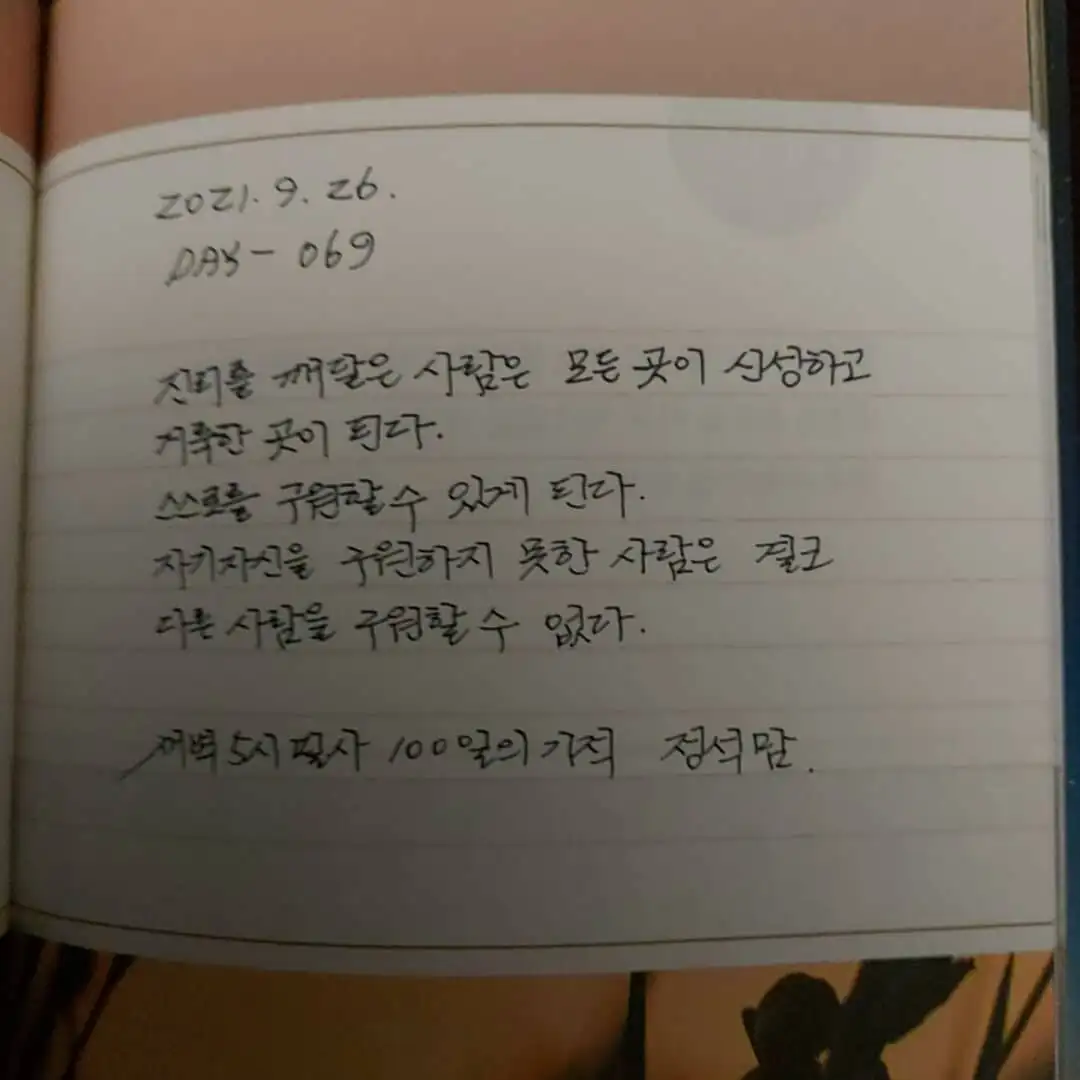 2021. 9. 26.
DAY - 069
진리를 깨달은 사람은 모든 곳이 신성하고
거룩한 곳이 된다.
스스로를 구원할 수 있게 된다.
자기자신을 구원하지 못한 사람은 결코
다른 사람을 구원할 수 없다.
새벽 5시 필사 100일의 기적 정석맘.